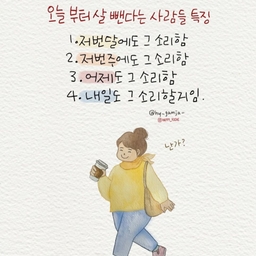 오늘부터 살 뺀다는 사람들 특징
1. 저번달에도 그 소리함
2. 저번주에도 그 소리함
3. 어제도 그 소리함
4. 내일도 그 소리할거임.
난가?